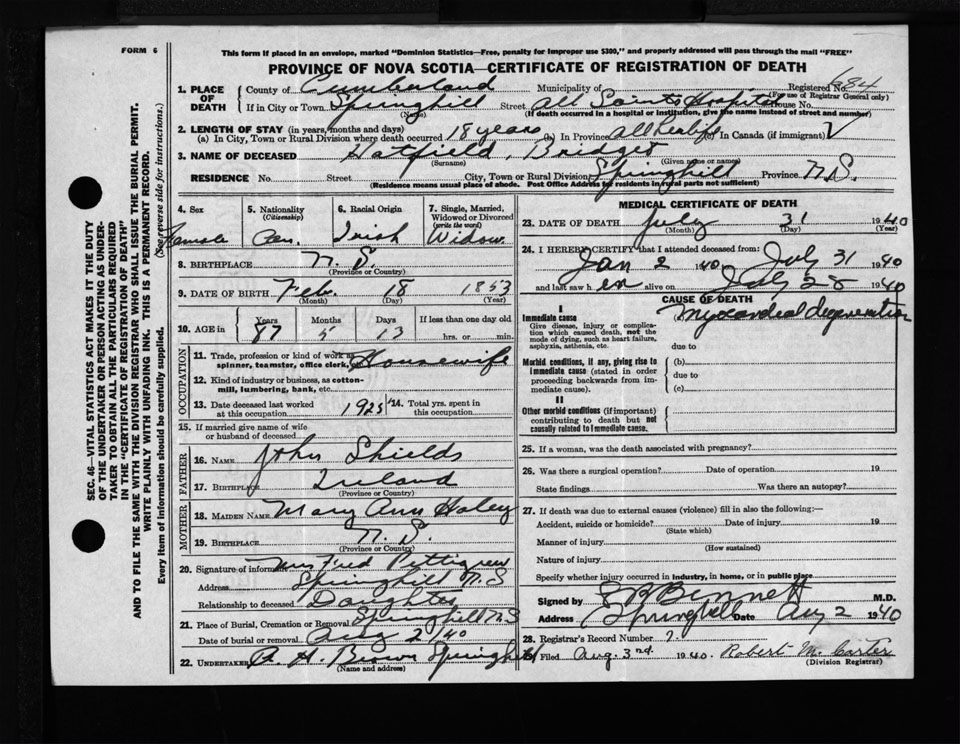 FORM 6
This form if placed in an envelope, marked "Dominion Statistics—Free, penalty for improper use $300," and properly addressed will pass through the mail "FREE"
PROVINCE OF NOVA SCOTIA—CERTIFICATE OF REGISTRATION OF DEATH
1. PLACE OF DEATH County of Cumberland Municipality of Registered No. 684
(For use of Registrar General only)
If in City or Town Springhill Street All Saints Hospital House No.
(Name) (If death occurred in a hospital or institution, give the name instead of street and number)
2. LENGTH OF STAY (in years, months and days)
(a) In City, Town or Rural Division where death occurred 18 years (b) In Province All her life (c) In Canada (if immigrant)
3. NAME OF DECEASED Hatfield, Bridget
(Surname) (Given name or names)
RESIDENCE No. Street City, Town or Rural Division Springhill Province N.S.
(Residence means usual place of abode. Post Office Address for residents in rural parts not sufficient)
4. Sex Female
5. Nationality (Citizenship) Can.
6. Racial Origin Irish
7. Single, Married, Widowed or Divorced (write the word) Widow
8. BIRTHPLACE N.S.
(Province or Country)
9. DATE OF BIRTH Feb. 18 1853
(Month) (Day) (Year)
10. AGE in Years Months Days If less than one day old
87 5 13 hrs. or min.
OCCUPATION
11. Trade, profession or kind of work as spinner, teamster, office clerk, Housewife
12. Kind of industry or business, as cotton-mill, lumbering, bank, etc.
13. Date deceased last worked at this occupation 1925 14. Total yrs. spent in this occupation
15. If married give name of wife or husband of deceased
FATHER
16. NAME John Shields
17. BIRTHPLACE Ireland
(Province or Country)
MOTHER
18. MAIDEN NAME Mary Ann Haley
19. BIRTHPLACE N.S.
(Province or Country)
20. Signature of informant Mrs Fred Pettigrew
Address Springhill N.S
Relationship to deceased Daughter
21. Place of Burial, Cremation or Removal Springhill N.S
Date of burial or removal Aug 2/40
22. UNDERTAKER A. H. Brown Springhill
(Name and address)
MEDICAL CERTIFICATE OF DEATH
23. DATE OF DEATH July 31 1940
(Month) (Day) (Year)
24. I HEREBY CERTIFY that I attended deceased from:
Jan 2 1940 July 31 1940
and last saw her alive on July 28 1940
CAUSE OF DEATH
Immediate cause Myocardial degeneration
Give disease, injury or complication which caused death, not the mode of dying, such as heart failure, asphyxia, asthenia, etc.
due to
Morbid conditions, if any, giving rise to immediate cause (stated in order proceeding backwards from immediate cause).
(b)
due to
(c)
II
Other morbid conditions (if important) contributing to death but not causally related to immediate cause.
25. If a woman, was the death associated with pregnancy?
26. Was there a surgical operation? Date of operation 19
State findings Was there an autopsy?
27. If death was due to external causes (violence) fill in also the following:—
Accident, suicide or homicide? Date of injury 19
(State which)
Manner of injury
(How sustained)
Nature of injury
Specify whether injury occurred in industry, in home, or in public place
Signed by Bennett M.D.
Address Springhill Date Aug 2 1940
28. Registrar's Record Number
Filed Aug. 3rd. 1940. Robert M. Carter
(Division Registrar)
SEC. 46—VITAL STATISTICS ACT MAKES IT THE DUTY
OF THE UNDERTAKER OR PERSON ACTING AS UNDER-
TAKER TO OBTAIN ALL THE PARTICULARS REQUIRED
IN THE "CERTIFICATE OF REGISTRATION OF DEATH"
AND TO FILE THE SAME WITH THE DIVISION REGISTRAR WHO SHALL ISSUE THE BURIAL PERMIT.
WRITE PLAINLY WITH UNFADING INK. THIS IS A PERMANENT RECORD.
Every item of information should be carefully supplied. (See reverse side for instructions.)